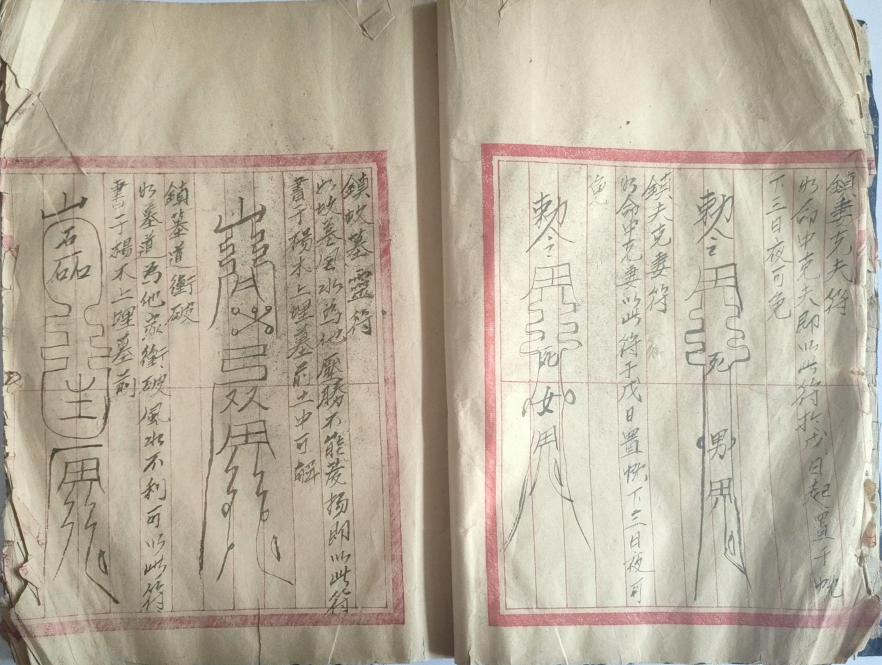 鎮妻克夫符
如命中克夫即以此符於戊日起置于
下三日夜可免
勅令
用
死
男
用
鎮夫克妻符
如命中克妻以此符于戊日置 下三日夜可
免
勅令
用
死
女
用
鎮坟墓靈符
如坟墓風水為他壓勝不能發揚即以此符
書于楊木上埋墓前土中可解
弓双用
鎮墓道衝破
如墓道為他家衝破風水不利可以此符
書于楊木上埋墓前
山
石
磊
生
用